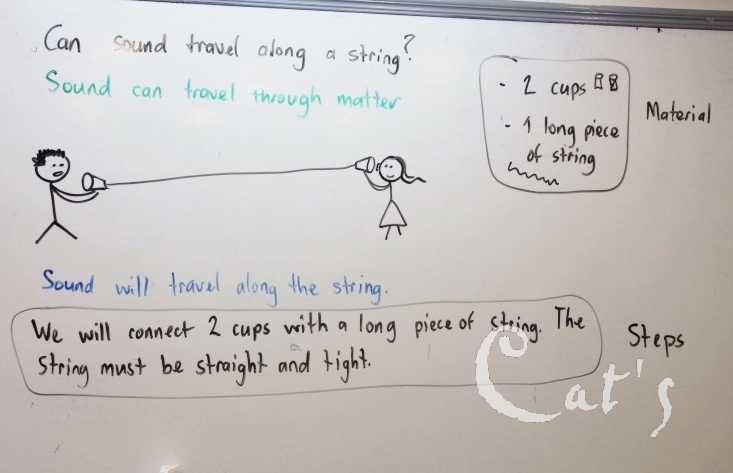 Can sound travel along a string?
Sound can travel through matter
- 2 cups
- 1 long piece
of string
Material
Sound will travel along the string.
We will connect 2 cups with a long piece of string. The
string must be straight and tight.
Steps
Cat's